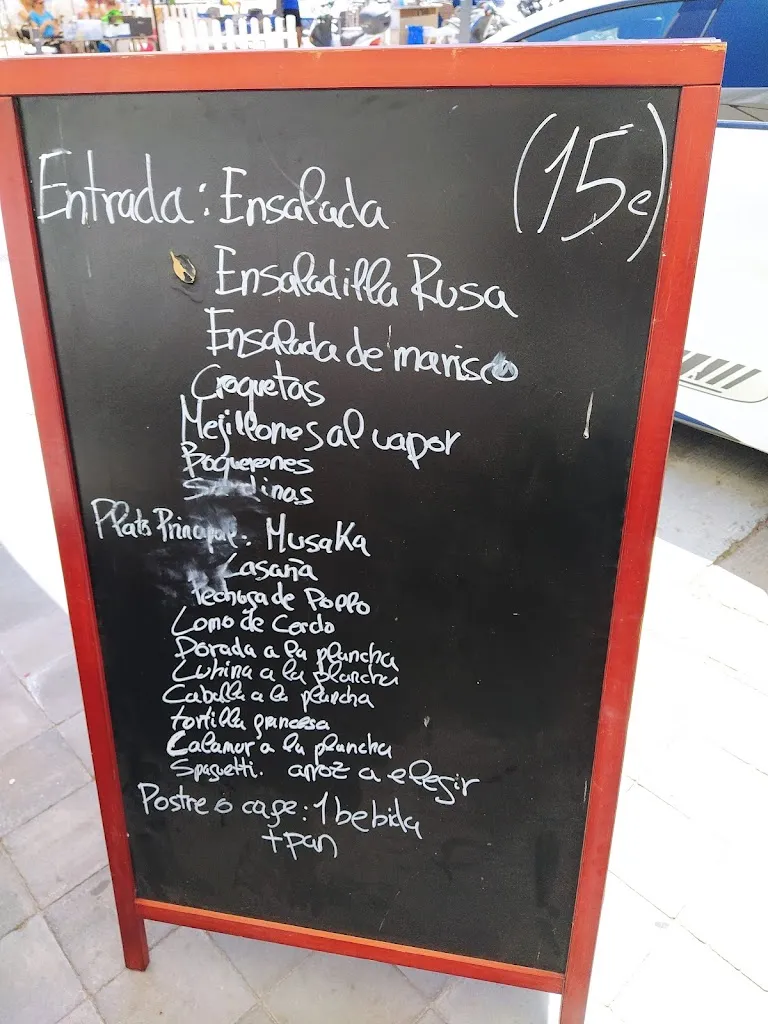 (15€)
Entrada: Ensalada
Ensaladilla Rusa
Ensalada de marisco
Croquetas
Mejillones al vapor
Boquerones
Sardinas
Plato Principal: Musaka
Lasaña
Pechuga de Pollo
Lomo de Cerdo
Dorada a la plancha
Lubina a la plancha
Caballa a la plancha
tortilla francesa
Calamar a la plancha
Spaguetti. arroz a elegir
Postre o café: 1 bebida
+pan